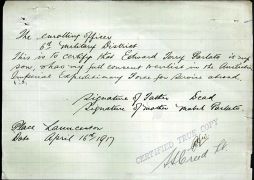 The enrolling Officer
6th Military District
This is to certify that Edward Terry Parlato is my
son, & has my full consent to enlist in the Australian
Imperial Expeditionary Force for service abroad.
Signature of Father Dead
Signature of mother Mabel Parlato
Place Launceston
Date April 16th 1917
CERTIFIED TRUE COPY
Lt.